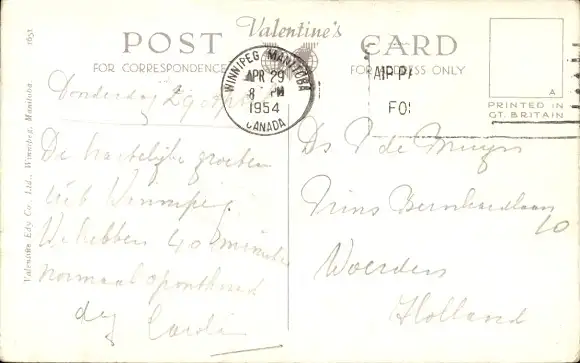 Valentine's
POST CARD
FOR CORRESPONDENCE
FOR ADDRESS ONLY
WINNIPEG MANITOBA
APR 29
8 PM
1954
CANADA
AIR PA
FO
A
PRINTED IN
GT. BRITAIN
Valentine Edy Co., Ltd., Winnipeg, Manitoba. 1651
Donderdag 29 april
De hartelijke groeten
uit Winnipeg.
We hebben 40 minuten
normaal oponthoud
dag
Ds de
Prins Bernhardlaan
10
Woerden
Holland